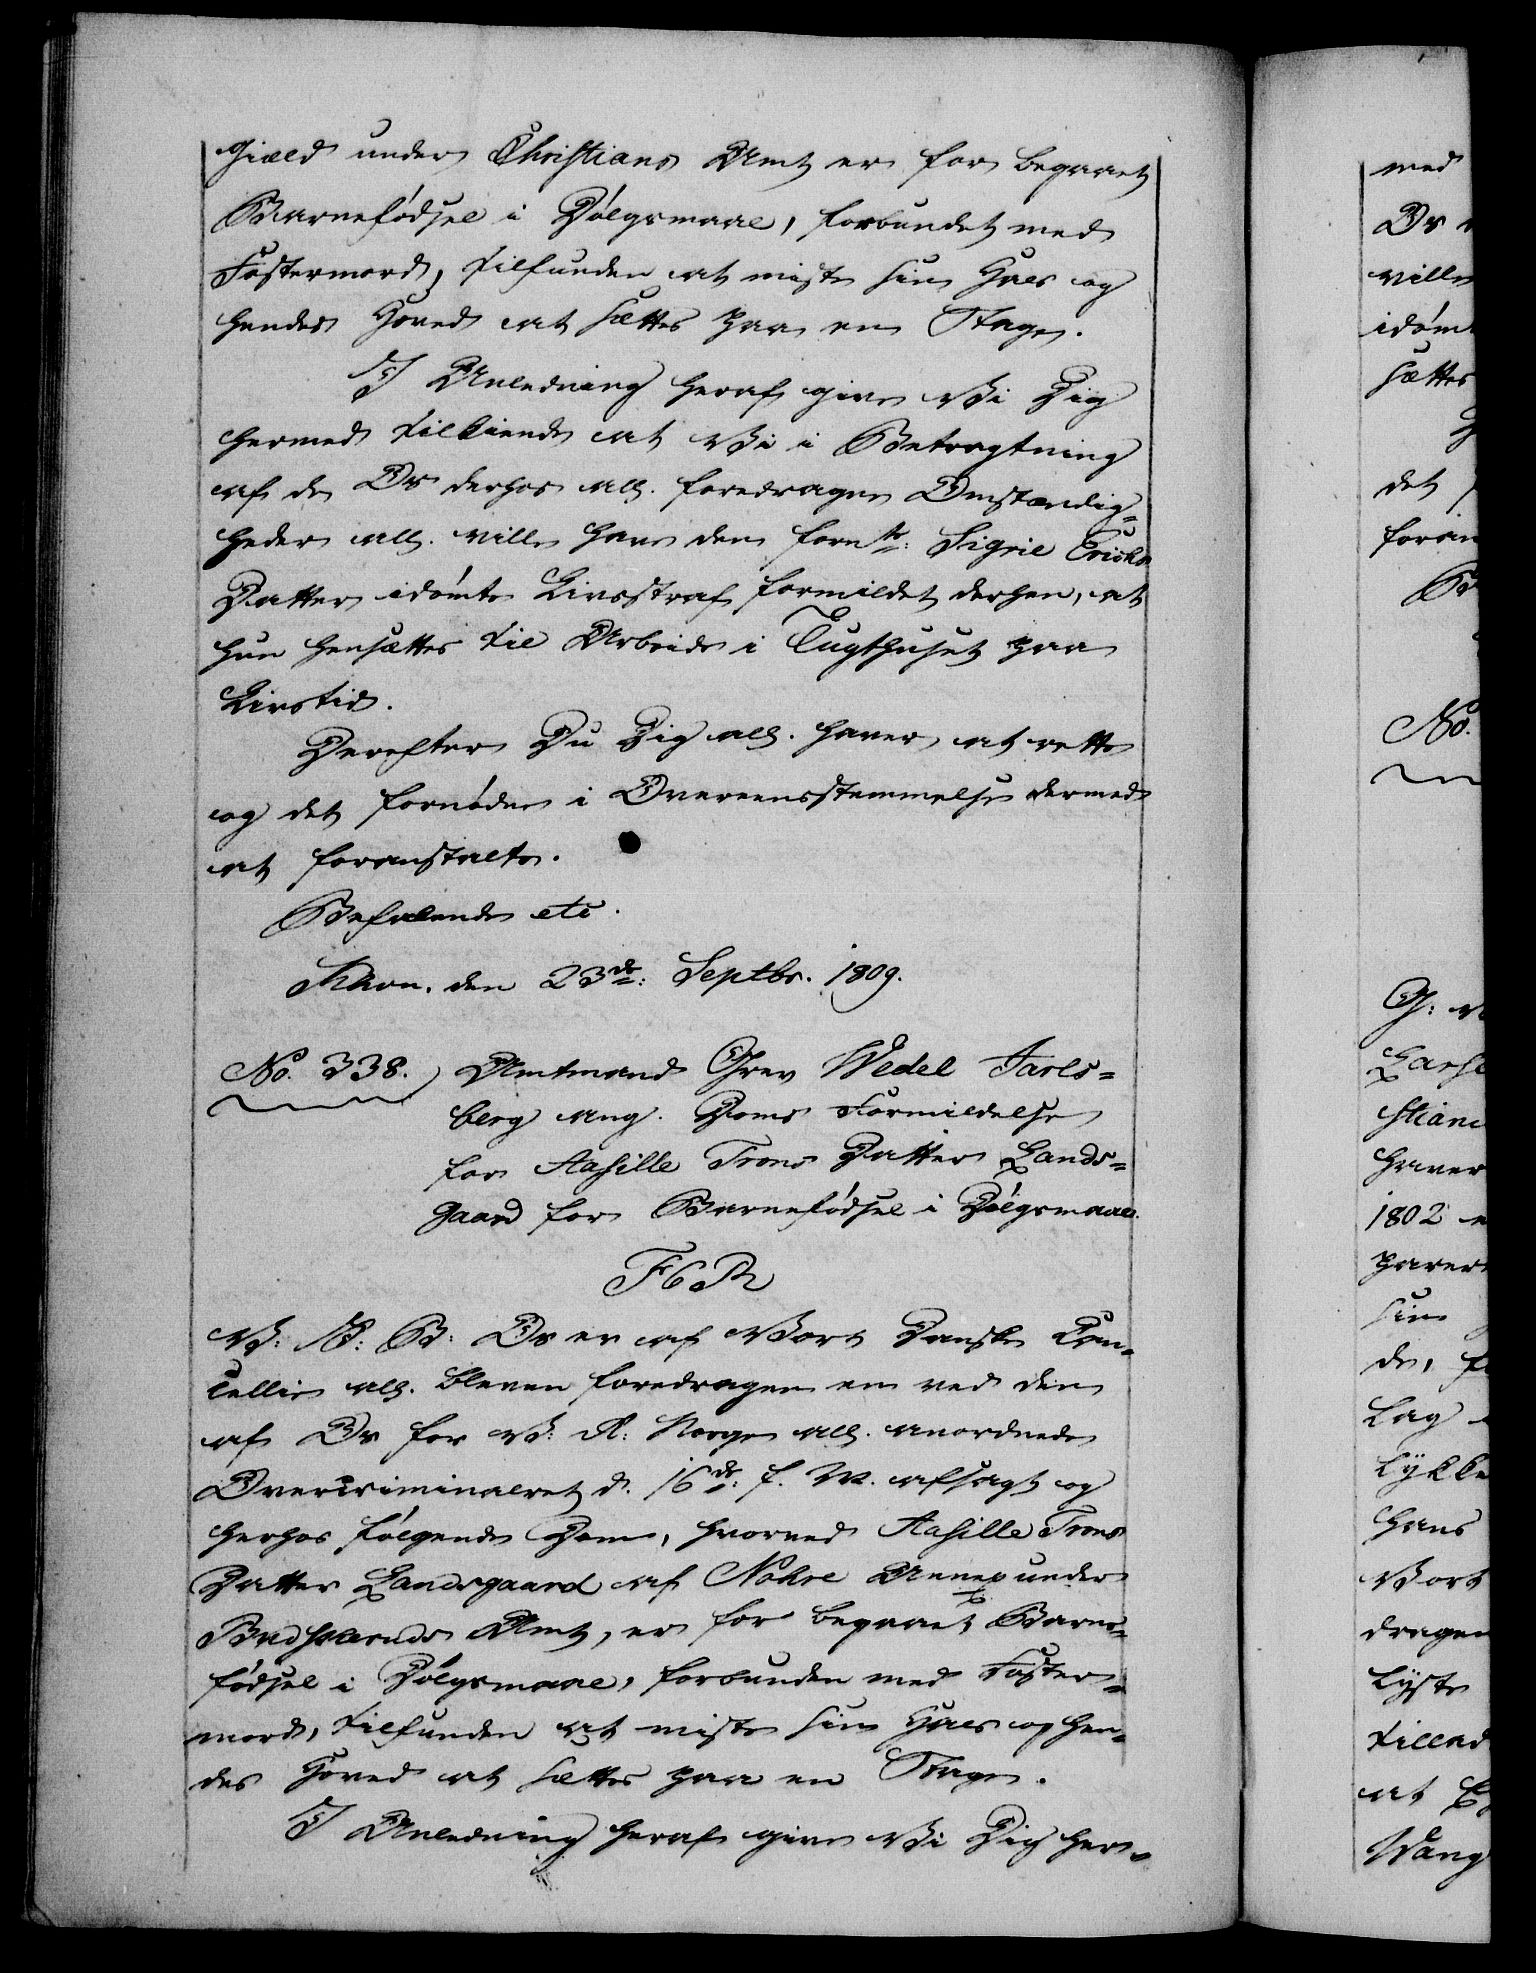 gield under Christians Amt er for begaaet
Barnefødsel i Dølgsmaal, forbundet med
Fostermord, tilfunden at miste sin Hals og
hendes Hoved at sættes paa en Stage.
I Anledning heraf give Vi Dig
hermed tilkiende at Vi i Betragtning
af de Os derhos all. foredragne Omstændig=
heder all. ville have den forn te: Sigrie Erichs
Datter idømte Livsstraf formildet derhen, at
hun hensættes til Arbeide i Tugthuset paa
Livstid.
Derefter Du Dig all. haver at rette
og det fornødne i Overeensstemmelse dermed
at foranstalte.
Befalende etc.
Khvn. den 23de: Septbr. 1809.
No. 338. Amtmand Grev Wedel Jarls=
berg ang. Doms Formildelse
for Aasille Trons Datter Lands=
gaard for Barnefødsel i Dølgsmaal.
F6R
V: S: B: Os er af Vort Danske Can=
cellie all. bleven foredragen en ved den
af Os for V: R: Norge all. anordnede
Overcriminalret d. 16de: f. M. afsagt og
herhos følgende Dom, hvorved Aasille Trons
Datter Landsgaard af Nohre Annex under
Budskeruds Amt, er for begaaet Barne=
fødsel i Dølgsmaal, forbunden med Foster=
mord, tilfunden at miste sin Hals og hen=
des Hoved at sættes paa en Stage.
I Anledning heraf give Vi Dig her=
med
Os
ville
idømt
sættes
det
foran
No.
G:
Larse
stian
haver
1802
sin
de,
lag
lykke
hans
Vort
dragen
lyste
tillad
at
Wang